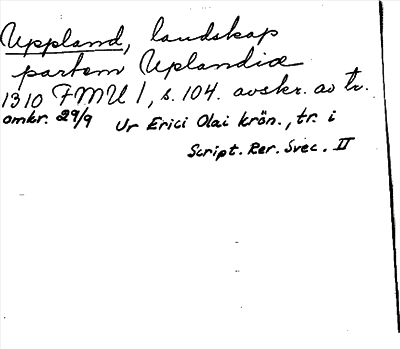 Uppland, landskap
partem Uplandiæ
1310 FMU 1, s. 104. avskr. av tr.
omkr. 29/9 Ur Erici Olai krön., tr. i
Script. Rer. Svec. II